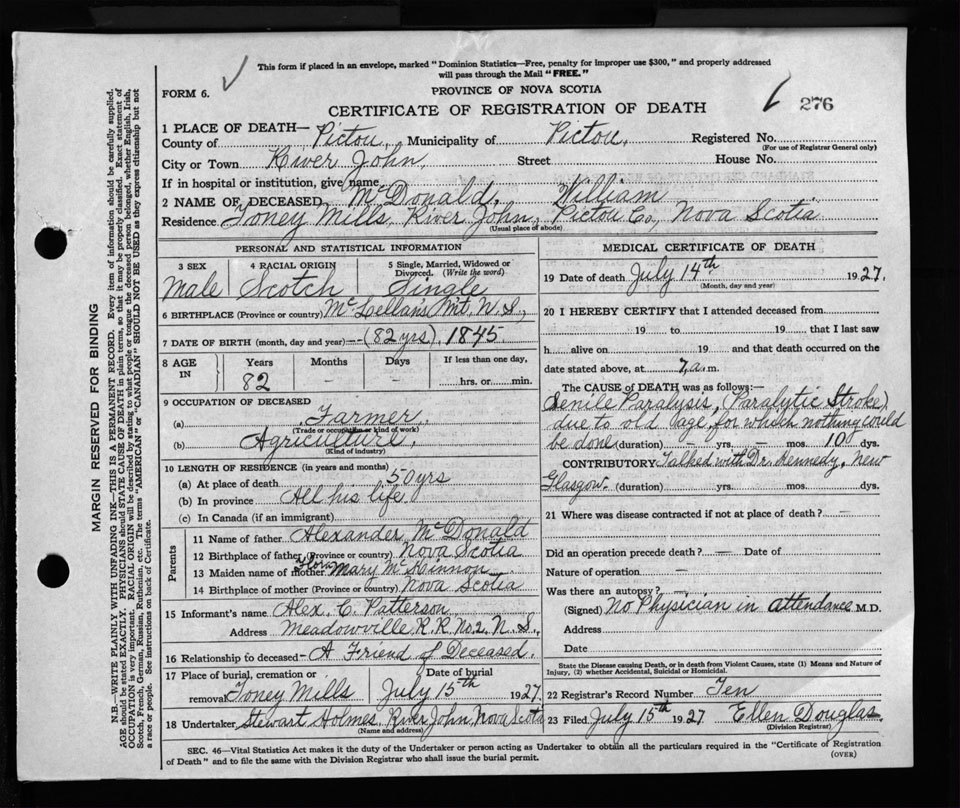 This form if placed in an envelope, marked "Dominion Statistics—Free, penalty for improper use $300," and properly addressed
will pass through the Mail "FREE."
FORM 6.
PROVINCE OF NOVA SCOTIA
CERTIFICATE OF REGISTRATION OF DEATH
276
1 PLACE OF DEATH—
County of Pictou, Municipality of Pictou, Registered No.
(For use of Registrar General only)
City or Town River John, Street House No.
If in hospital or institution, give name
2 NAME OF DECEASED McDonald, William
Residence Toney Mills, River John, Pictou Co, Nova Scotia
(Usual place of abode)
PERSONAL AND STATISTICAL INFORMATION
3 SEX 4 RACIAL ORIGIN 5 Single, Married, Widowed or
Divorced. (Write the word)
Male Scotch Single
6 BIRTHPLACE (Province or country) McLellan's Mt. N.S.,
7 DATE OF BIRTH (month, day and year) (82 yrs), 1845.
8 AGE IN Years Months Days If less than one day,
82 — — hrs. or min.
9 OCCUPATION OF DECEASED
(a) Farmer,
(Trade or occupation or kind of work)
(b) Agriculture,
(Kind of industry)
10 LENGTH OF RESIDENCE (in years and months)
(a) At place of death 50 yrs
(b) In province All his life,
(c) In Canada (if an immigrant)
Parents
11 Name of father Alexander McDonald
12 Birthplace of father (Province or country) Nova Scotia
13 Maiden name of mother Mary McKinnon
14 Birthplace of mother (Province or country) Nova Scotia
15 Informant's name Alex. C. Patterson
Address Meadowville, R.R. No. 2, N.S.,
16 Relationship to deceased— A Friend of Deceased.
17 Place of burial, cremation or Date of burial
removal Toney Mills July 15th 1927
18 Undertaker Stewart Holmes, River John, Nova Scotia
(Name and address)
MEDICAL CERTIFICATE OF DEATH
19 Date of death July 14th 1927.
(Month, day and year)
20 I HEREBY CERTIFY that I attended deceased from
19 to 19 that I last saw
h alive on 19 and that death occurred on the
date stated above, at 7 a. m.
The CAUSE of DEATH was as follows:—
Senile Paralysis, (Paralytic Stroke)
due to old age, for which nothing could
be done (duration) — yrs. — mos. 10 dys.
CONTRIBUTORY Talked with Dr. Kennedy, New
Glasgow. (duration) yrs. mos. dys.
21 Where was disease contracted if not at place of death? —
Did an operation precede death? — Date of
Nature of operation —
Was there an autopsy? —
(Signed) No Physician in attendance M.D.
Address
Date
State the Disease causing Death, or in death from Violent Causes, state (1) Means and Nature of
Injury, (2) whether Accidental, Suicidal or Homicidal.
22 Registrar's Record Number Ten
23 Filed July 15th 1927 Ellen Douglas
(Division Registrar)
SEC. 46—Vital Statistics Act makes it the duty of the Undertaker or person acting as Undertaker to obtain all the particulars required in the "Certificate of Registration
of Death" and to file the same with the Division Registrar who shall issue the burial permit.
(OVER)
MARGIN RESERVED FOR BINDING
N.B.—WRITE PLAINLY WITH UNFADING INK—THIS IS A PERMANENT RECORD. Every item of information should be carefully supplied.
AGE should be stated EXACTLY. PHYSICIANS should STATE CAUSE OF DEATH in plain terms, so that it may be properly classified. Exact statement of
OCCUPATION is very important. RACIAL ORIGIN will be described by stating to what people or tongue the deceased person belonged, whether English, Irish,
Scotch, French, German, Russian, Ruthenian, etc. The terms "AMERICAN" or "CANADIAN" SHOULD NOT BE USED as they express citizenship but not
a race or people. See instructions on back of Certificate.